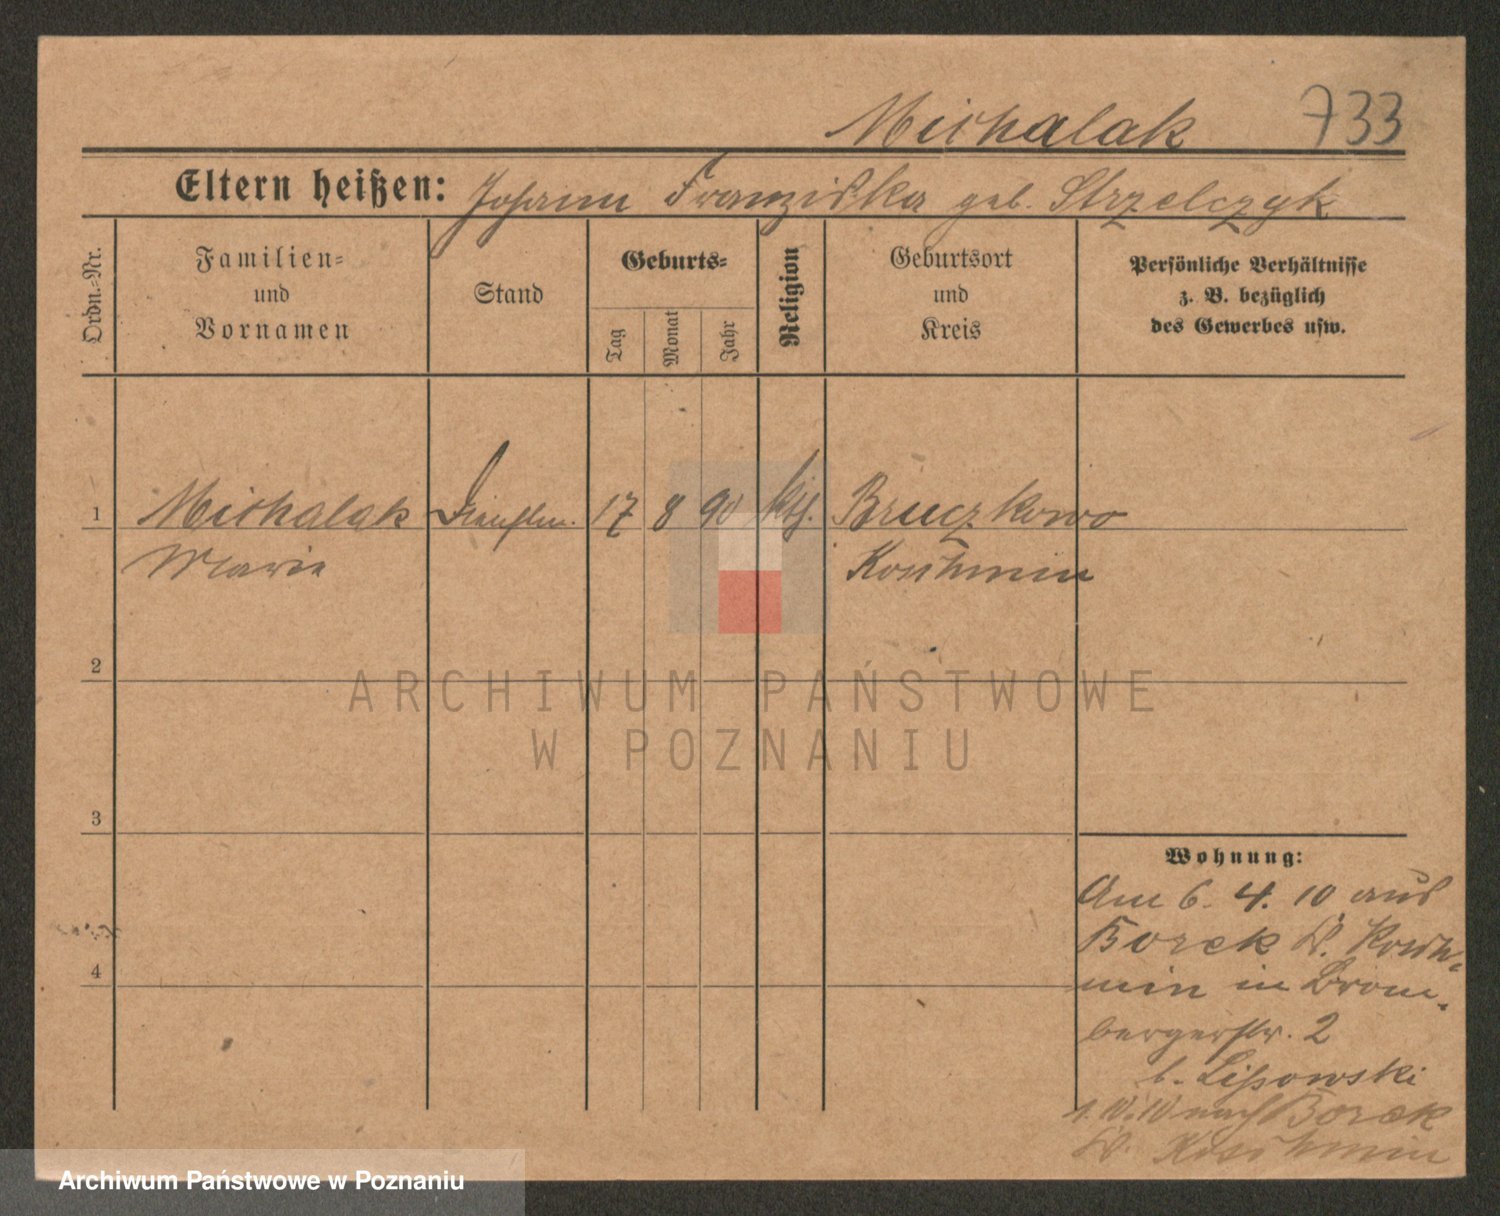 Michalak 733
Eltern heißen: Johann Franziska geb. Strzelczyk
Ordn.-Nr.
Familien-
und
Vornamen
Stand
Geburts-
Tag
Monat
Jahr
Religion
Geburtsort
und
Kreis
Persönliche Verhältnisse
z. B. bezüglich
des Gewerbes usw.
1 Michalak 17 8 90 kth. Bruczkowo
Marie Koschmin
2
3
4
Wohnung:
Am 6. 4. 10 aus
Borek Kr. Kosch-
min in Brom-
bergerstr. 2
b. Lissowski
1.10.10 nach Borek
Kr. Koschmin
ARCHIWUM PAŃSTWOWE
W POZNANIU
Archiwum Państwowe w Poznaniu